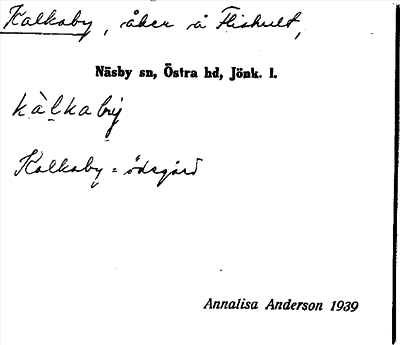 Kalkaby, åker å Flishult,
Näsby sn, Östra hd, Jönk. l.
kàlkabý
Kalkaby = ödsgård
Annalisa Anderson 1939